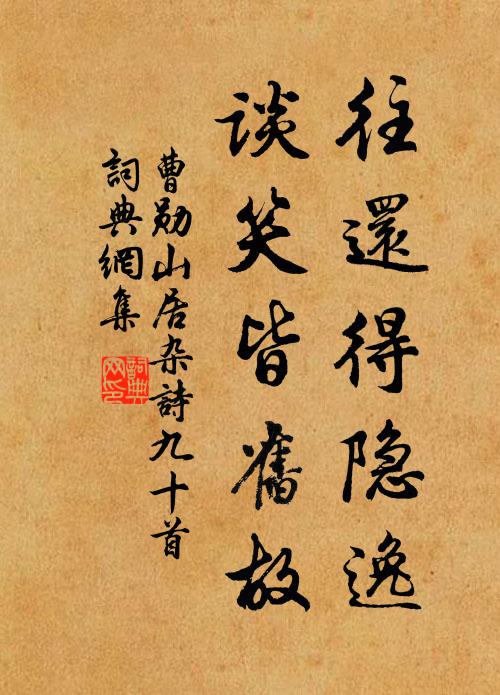 往還得隐逸
談笑皆舊故
曹勋山居杂詩九十首
詞典網集
詞典网印